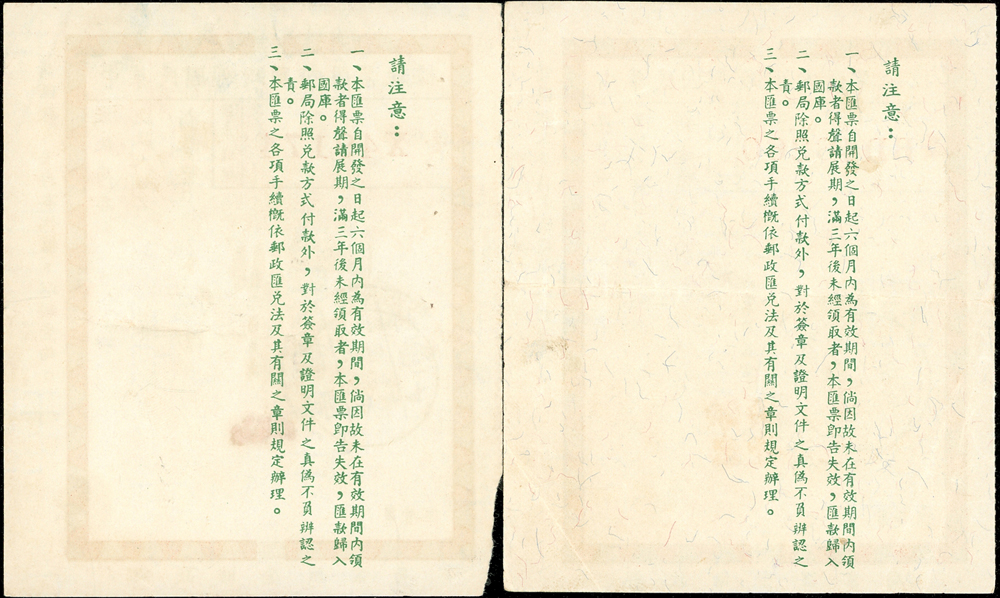 請注意：
一、本匯票自開發之日起六個月內為有效期間，倘因故未在有效期間內領
款者得聲請展期，滿三年後未經領取者，本匯票卽告失效，匯款歸入
國庫。
二、郵局除照兌款方式付款外，對於簽章及證明文件之真偽不負辨認之
責。
三、本匯票之各項手續槪依郵政匯兌法及其有關之章則規定辦理。
請注意：
一、本匯票自開發之日起六個月內為有效期間，倘因故未在有效期間內領
款者得聲請展期，滿三年後未經領取者，本匯票卽告失效，匯款歸入
國庫。
二、郵局除照兌款方式付款外，對於簽章及證明文件之真偽不負辨認之
責。
三、本匯票之各項手續槪依郵政匯兌法及其有關之章則規定辦理。